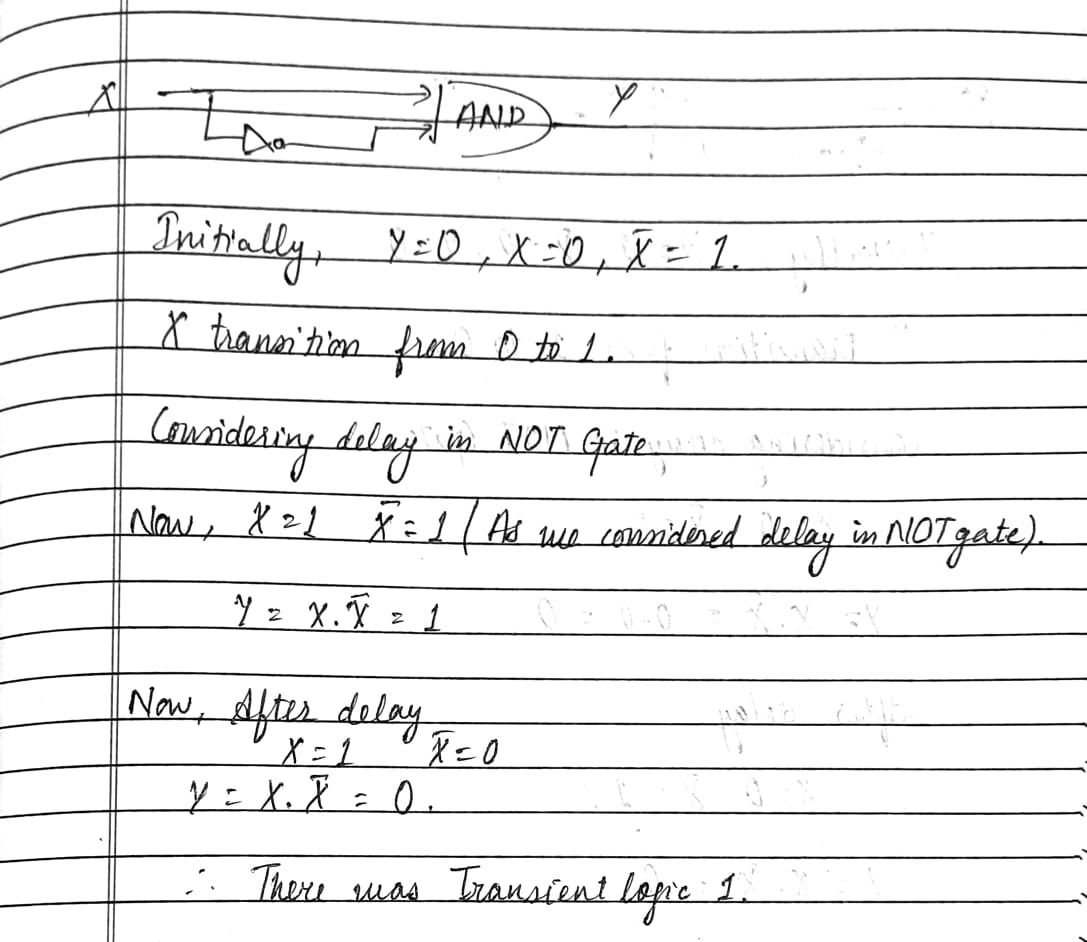 X AND Y
Initially, Y=0, X=0, X̄ = 1.
X transition from 0 to 1.
Considering delay in NOT Gate,
Now, X=1 X̄=1 (As we considered delay in NOT gate).
Y = X.X̄ = 1
Now, After delay
X=1 X̄=0
Y = X.X̄ = 0.
∴ There was Transient logic 1.